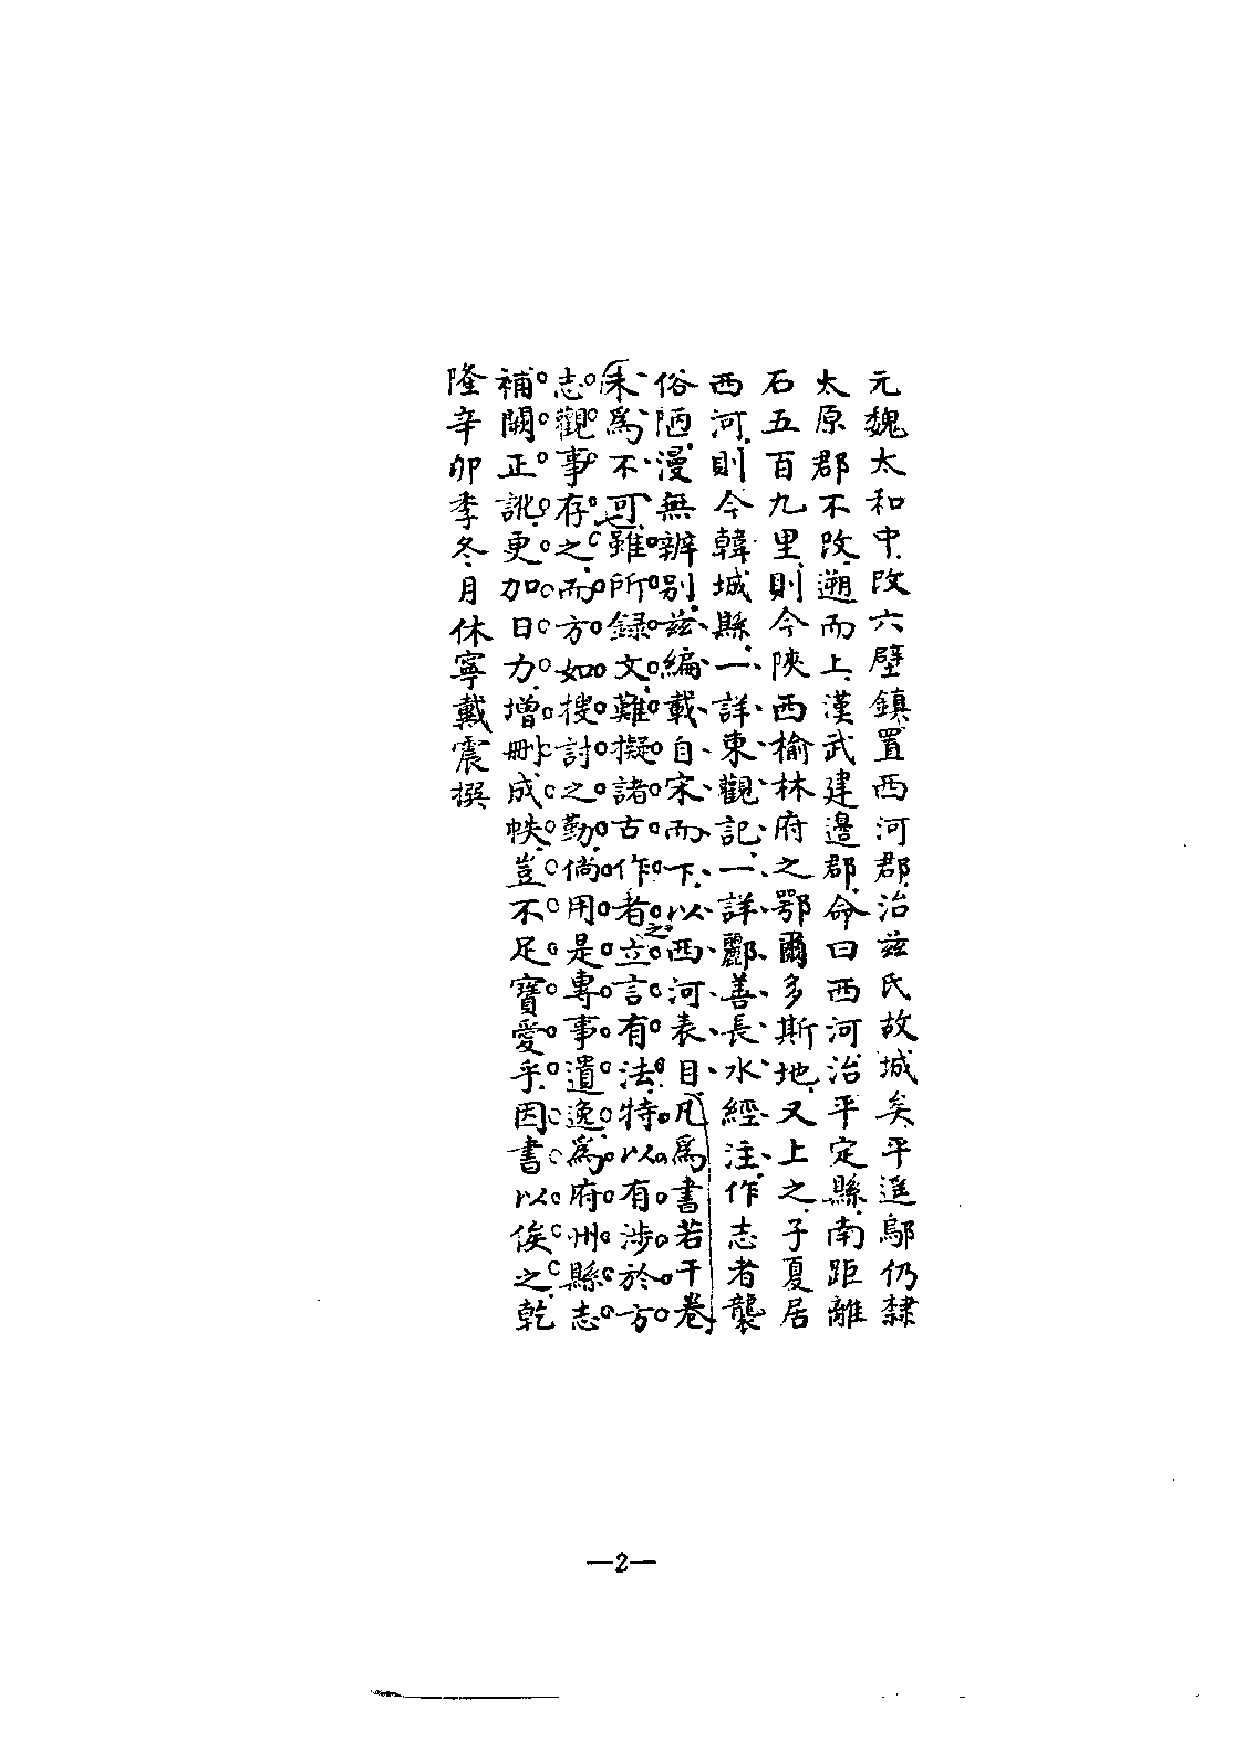 元魏太和中改六壁鎮置西河郡治茲氏故城矣平遥鄔仍隸
太原郡不改遡而上漢武建邊郡命曰西河治平定縣南距離
石五百九里則今陝西榆林府之鄂爾多斯地又上之子夏居
西河則今韓城縣一詳東觀記一詳酈善長水經注作志者襲
俗陋漫無辦别茲編載自宋而下以西河表目凡爲書若干卷
未爲不可雖所録文難擬諸古作者之立言有法特以有涉於方
志觀事存之而方如搜討之勤倘用是專事遺逸爲府州縣志
補闕正訛更加日力增刪成帙豈不足寶愛乎因書以俟之乾
隆辛卯季冬月休寧戴震撰
—2—